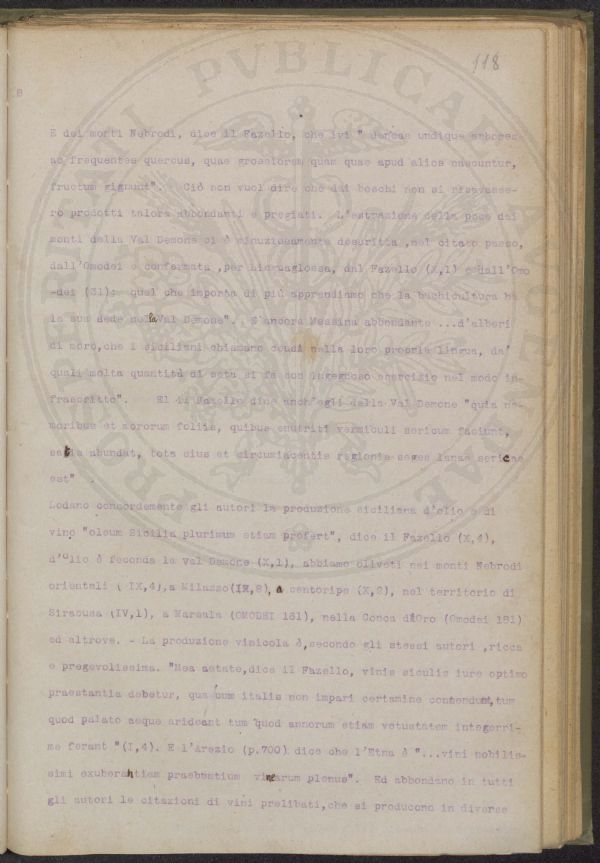 118
8
E dei monti Nebrodi, dice il Fazello, che ivi " densas undique arbores
ac frequentes quercus, quae grossiorem quam quae apud alios nascuntur,
fructum gignunt". Ciò non vuol dire che dai boschi non si ricavasse-
ro prodotti talora abbondanti e pregiati. L'estrazione della pece dai
monti della Val Demone ci è minuziosamente descritta ,nel citato passo,
dall'Omodei e confermata ,per dal Fazello (X,1) e dall'Omo
-dei (31): quel che importa di più apprendiamo che la bachicultura ha
la sua sede nella Val Demone". E'ancora Messina abbondante ...d'alberi
di moro,che i siciliani chiamano ceudi nella loro propria lingua, da'
quali molta quantità di seta si fa con ingegnoso esercizio nel modo in-
frascritto". Ed il Fazello dice anch'egli della Val Demone "quia ne-
moribus et mororum foliis, quibus enutriti vermiculi sericum faciunt,
satis abundat, tota eius et circumiacentis regionis seges lanae sericae
est"
Lodano concordemente gli autori la produzione siciliana d'olio e di
vino "oleum Sicilia plurimum etiam profert", dice il Fazello (X,4),
d'olio è feconda la Val Demone (X,1), abbiamo oliveti nei monti Nebrodi
orientali ( IX,4),a Milazzo(IX,8), a Centoripe (X,2), nel territorio di
Siracusa (IV,1), a Marsala (OMODEI 161), nella Conca d'Oro (Omodei 181)
ed altrove. - La produzione vinicola è,secondo gli stessi autori ,ricca
e pregevolissima. "Mea aetate,dice il Fazello, vinis siculis iure optimo
praestantia debetur, qua cum italis non impari certamine contendunt,tum
quod palato aeque arideant tum quod annorum etiam vetustatem integerri-
me ferant "(I,4). E l'Arezio (p.700) dice che l'Etna è "...vini nobilis-
simi exuberantiam praebentium vinearum plenus". Ed abbondano in tutti
gli autori le citazioni di vini prelibati,che si producono in diverse